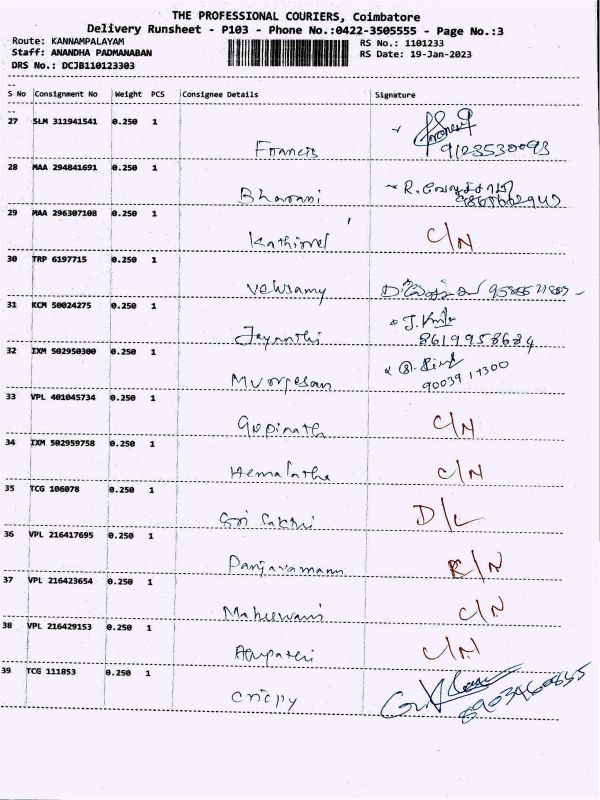 THE PROFESSIONAL COURIERS, Coimbatore
Delivery Runsheet - P103 - Phone No.:0422-3505555 - Page No.:3
Route: KANNAMPALAYAM RS No.: 1101233
Staff: ANANDHA PADMANABAN RS Date: 19-Jan-2023
DRS No.: DCJB110123303
S No Consignment No Weight PCS Consignee Details Signature
27 SLM 311941541 0.250 1
Francis 9123530093
28 MAA 294841691 0.250 1
Bharani R.
29 MAA 296307108 0.250 1
Kathirvel C/N
30 TRP 6197715 0.250 1
31 KCM 50024275 0.250 1
Jayanthi 8619958684
32 IXM 502950300 0.250 1
33 VPL 401045734 0.250 1
Gopinath C/N
34 IXM 502959758 0.250 1
Hemalatha C/N
35 TCG 106078 0.250 1
Sri Sakthi D/L
36 VPL 216417695 0.250 1
37 VPL 216423654 0.250 1
Maheswari C/N
38 VPL 216429153 0.250 1
C/N
39 TCG 111853 0.250 1
Crispy